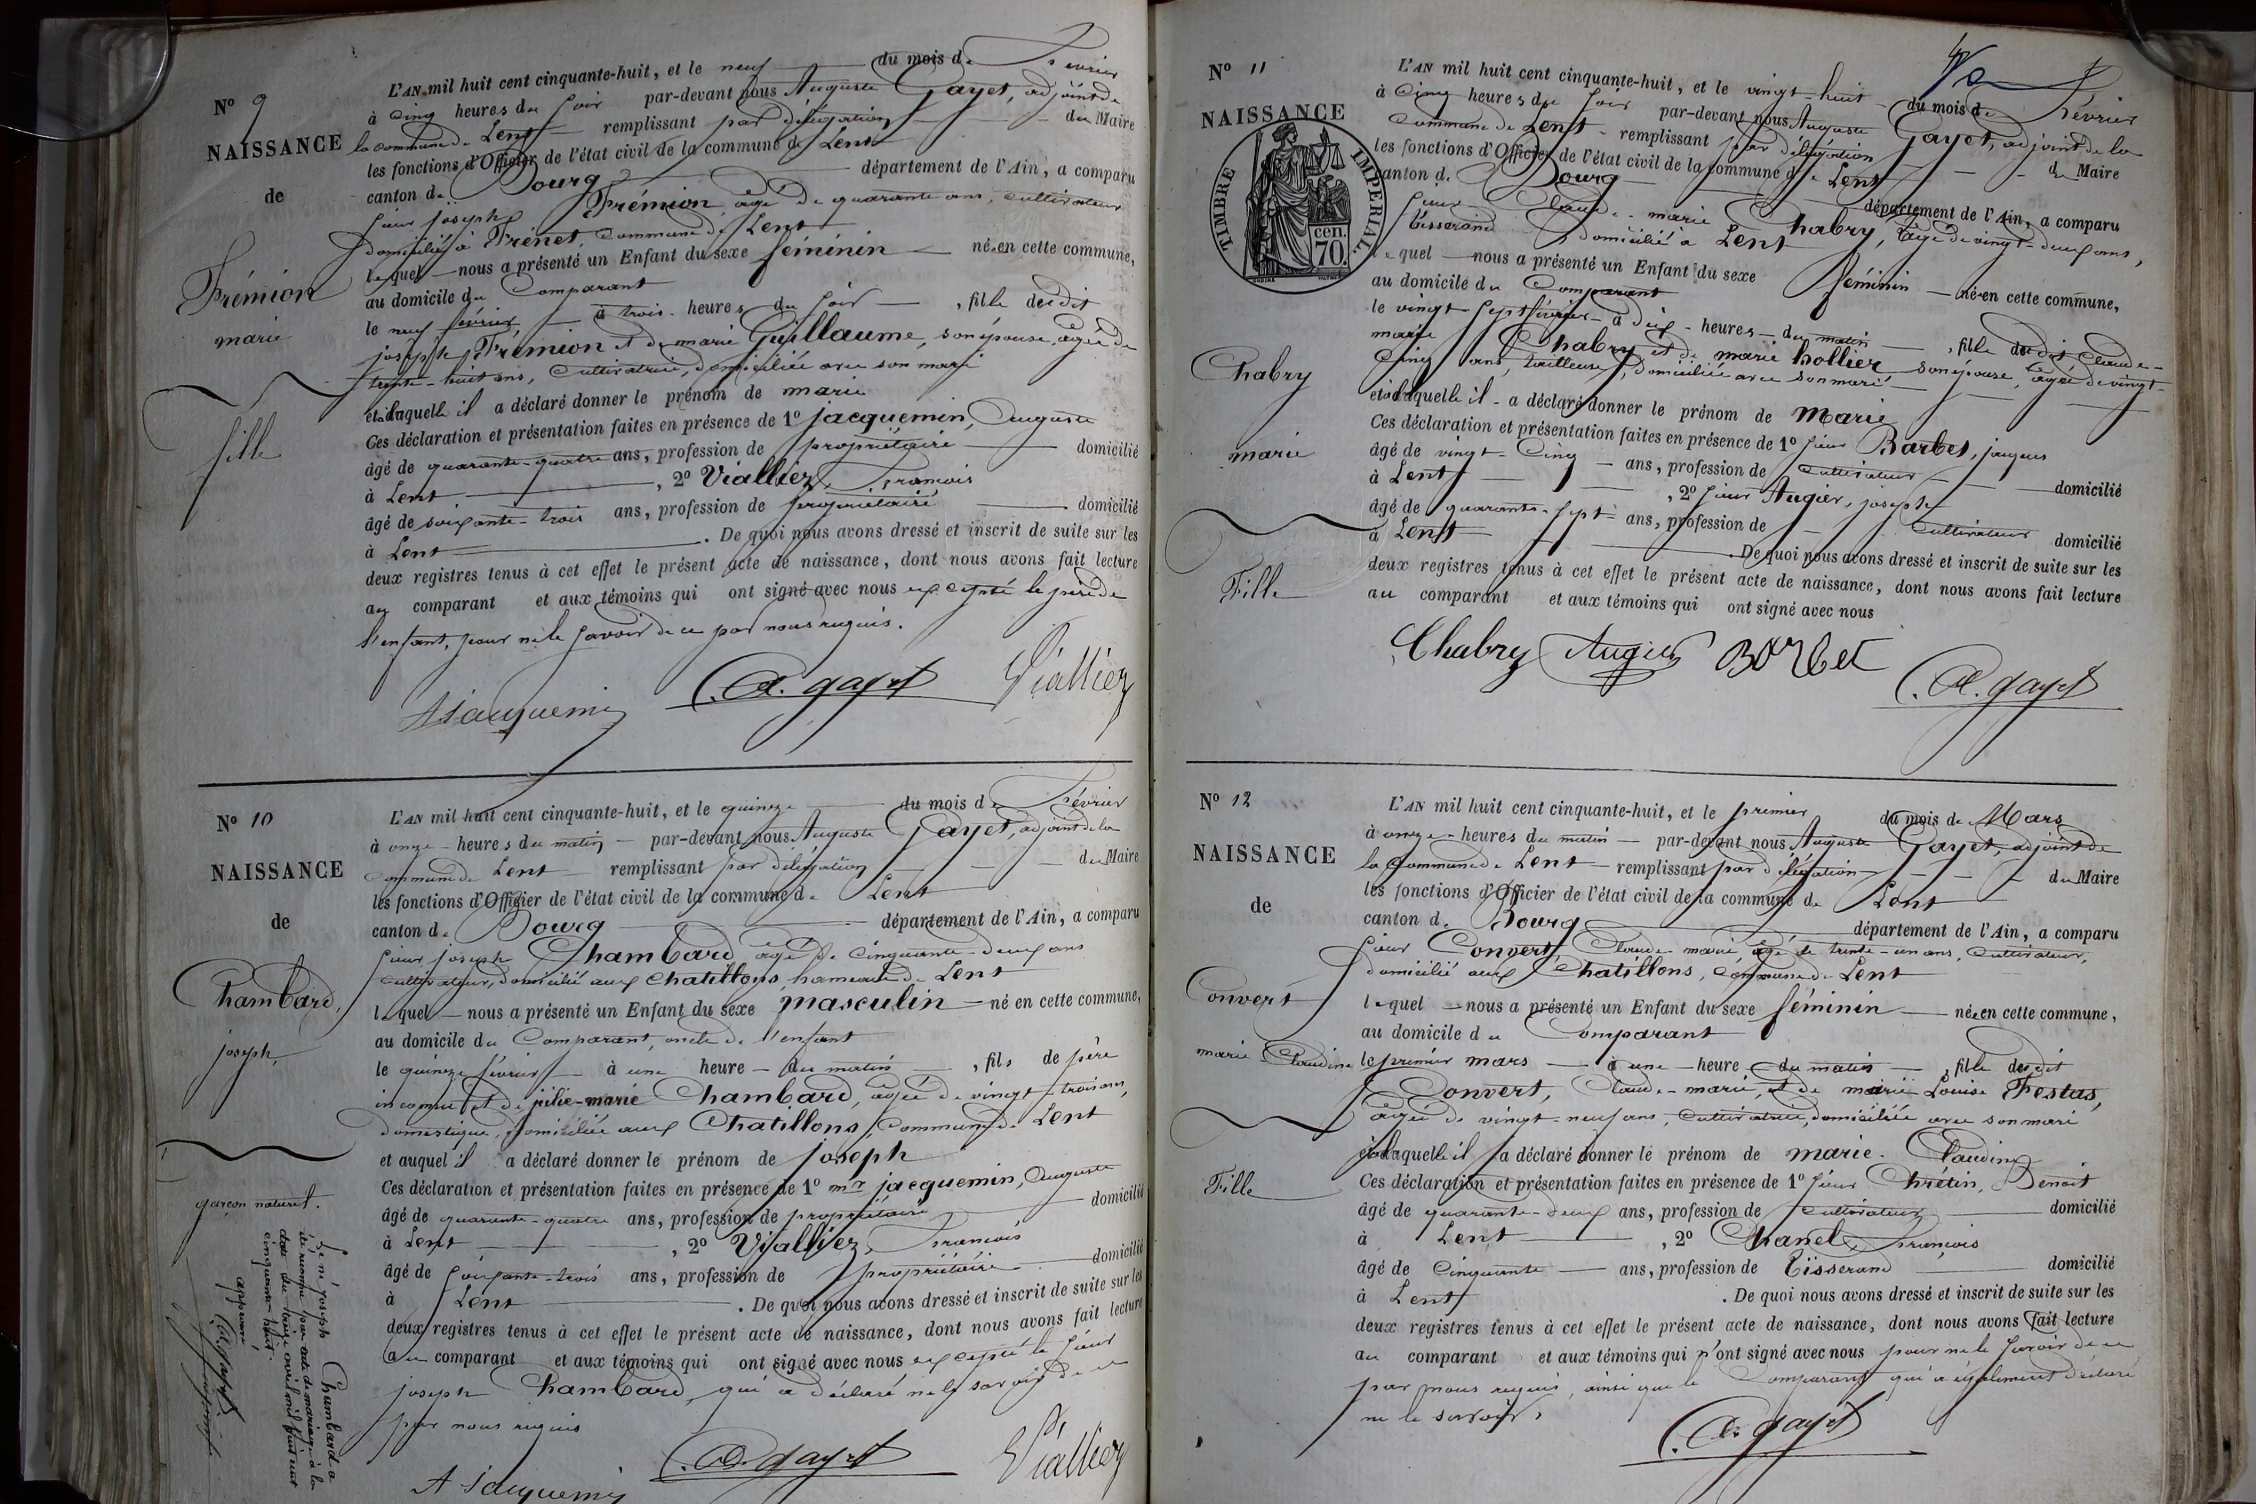 N° 9
NAISSANCE
de
Frémion
marie
fille
L'AN mil huit cent cinquante-huit, et le neuf du mois de Février
à cinq heures du soir par-devant nous Auguste Gayet, adjoint de
la commune de Lent remplissant par délégation du Maire
les fonctions d'Officier de l'état civil de la commune de Lent
canton de Bourg département de l'Ain, a comparu
sieur joseph Frémion âgé de quarante ans, cultivateur
domicilié à Frénet, commune de Lent
lequel nous a présenté un Enfant du sexe féminin née en cette commune,
au domicile du Comparant
le neuf février à trois heures du soir, fille dudit
joseph Frémion et de marie Guillaume, son épouse, âgée de
trente-huit ans, cultivatrice, domiciliée avec son mari
et à laquelle il a déclaré donner le prénom de marie
Ces déclaration et présentation faites en présence de 1° jacquemin, Auguste
âgé de quarante-quatre ans, profession de propriétaire domicilié
à Lent, 2° Viallier, François
âgé de soixante-trois ans, profession de propriétaire domicilié
à Lent. De quoi nous avons dressé et inscrit de suite sur les
deux registres tenus à cet effet le présent acte de naissance, dont nous avons fait lecture
au comparant et aux témoins qui ont signé avec nous excepté le père de
l'enfant, pour ne le savoir de ce par nous requis.
A Jacquemin A. gayet Viallier
N° 10
NAISSANCE
de
Chambard,
joseph,
garçon naturel.
L'AN mil huit cent cinquante-huit, et le quinze du mois de Février
à onze heures du matin par-devant nous Auguste Gayet, adjoint de la
commune de Lent remplissant par délégation du Maire
les fonctions d'Officier de l'état civil de la commune de Lent
canton de Bourg département de l'Ain, a comparu
sieur joseph Chambard âgé de cinquante-deux ans
cultivateur, domicilié aux Chatillons, hameau de Lent
lequel nous a présenté un Enfant du sexe masculin né en cette commune,
au domicile du Comparant, oncle de l'enfant
le quinze février à une heure du matin, fils de père
inconnu et de julie-marie Chambard, âgée de vingt-trois ans,
domestique, domiciliée aux Chatillons, commune de Lent
et auquel il a déclaré donner le prénom de joseph
Ces déclaration et présentation faites en présence de 1° mr jacquemin, Auguste
âgé de quarante-quatre ans, profession de propriétaire domicilié
à Lent, 2° Viallier, François
âgé de soixante-trois ans, profession de propriétaire domicilié
à Lent. De quoi nous avons dressé et inscrit de suite sur les
deux registres tenus à cet effet le présent acte de naissance, dont nous avons fait lecture
au comparant et aux témoins qui ont signé avec nous excepté le sieur
joseph Chambard, qui a déclaré ne le savoir de ce
par nous requis
A Jacquemin A. gayet Viallier
Le né joseph Chambard a
été reconnu par acte de mariage à la
date du avril mil huit cent
cinquante-huit.
approuvé,
N° 11
NAISSANCE
TIMBRE IMPERIAL.
70 cen.
Chabry
marie
Fille
L'AN mil huit cent cinquante-huit, et le vingt-huit du mois de Février
à cinq heures du soir par-devant nous Auguste Gayet, adjoint de la
commune de Lent remplissant par délégation du Maire
les fonctions d'Officier de l'état civil de la commune de Lent
canton de Bourg département de l'Ain, a comparu
sieur Claude-marie Chabry, âgé de vingt-deux ans,
tisserand domicilié à Lent
lequel nous a présenté un Enfant du sexe féminin née en cette commune,
au domicile du Comparant
le vingt-sept février à dix heures du matin, fille dudit Claude-
marie Chabry et de marie hollier son épouse, âgée de vingt-
cinq ans, tailleuse, domiciliée avec son mari
et à laquelle il a déclaré donner le prénom de Marie
Ces déclaration et présentation faites en présence de 1° sieur Barbet, jacques
âgé de vingt-cinq ans, profession de cultivateur domicilié
à Lent, 2° sieur Augier, joseph
âgé de quarante-sept ans, profession de cultivateur domicilié
à Lent. De quoi nous avons dressé et inscrit de suite sur les
deux registres tenus à cet effet le présent acte de naissance, dont nous avons fait lecture
au comparant et aux témoins qui ont signé avec nous
Chabry Augier Barbet A. gayet
N° 12
NAISSANCE
de
Convert
marie Claudine
Fille
L'AN mil huit cent cinquante-huit, et le premier du mois de Mars
à onze heures du matin par-devant nous Auguste Gayet, adjoint de
la commune de Lent remplissant par délégation du Maire
les fonctions d'Officier de l'état civil de la commune de Lent
canton de Bourg département de l'Ain, a comparu
sieur Convert, Claude-marie, âgé de trente-un ans, cultivateur,
domicilié aux Chatillons, commune de Lent
lequel nous a présenté un Enfant du sexe féminin née en cette commune,
au domicile du Comparant
le premier mars à une heure du matin, fille dudit
Convert, Claude-marie, et de marie Louise Festas,
âgée de vingt-neuf ans, cultivatrice, domiciliée avec son mari
et à laquelle il a déclaré donner le prénom de marie-Claudine
Ces déclaration et présentation faites en présence de 1° sieur Chrétin, Benoit
âgé de quarante-deux ans, profession de cultivateur domicilié
à Lent, 2° Chanel, François
âgé de cinquante ans, profession de tisserand domicilié
à Lent. De quoi nous avons dressé et inscrit de suite sur les
deux registres tenus à cet effet le présent acte de naissance, dont nous avons fait lecture
au comparant et aux témoins qui n'ont signé avec nous pour ne le savoir de ce
par nous requis, ainsi que le Comparant qui a également déclaré
ne le savoir.
A. gayet